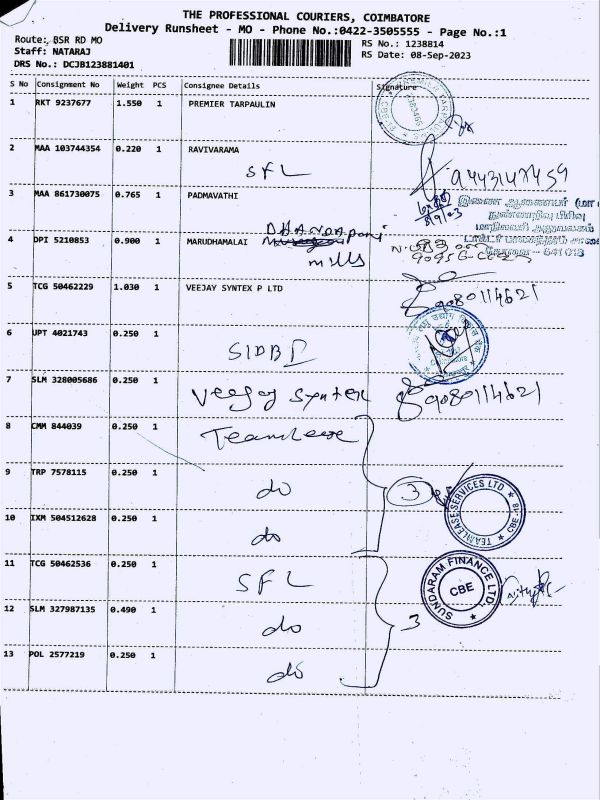 THE PROFESSIONAL COURIERS, COIMBATORE
Delivery Runsheet - MO - Phone No.:0422-3505555 - Page No.:1
Route: BSR RD MO
RS No.: 1238814
Staff: NATARAJ
RS Date: 08-Sep-2023
DRS No.: DCJB123881401
S No Consignment No Weight PCS Consignee Details Signature
1 RKT 9237677 1.550 1 PREMIER TARPAULIN
2 MAA 103744354 0.220 1 RAVIVARAMA
SFL 9443147459
3 MAA 861730075 0.765 1 PADMAVATHI
8/9/23
இணை ஆணையர்
நுண்ணறிவு பிரிவு
மாநிலவரி அலுவலகம்
641 018
4 DPI 5210853 0.900 1 MARUDHAMALAI DHANDAPANI
mills
5 TCG 50462229 1.030 1 VEEJAY SYNTEX P LTD
9080114621
6 JPT 4021743 0.250 1
SIDBI
7 SLM 328005686 0.250 1 Veejay Syntex 9080114621
8 CMM 844039 0.250 1 Teamlease
9 TRP 7578115 0.250 1
do 3
TEAMLEASE SERVICES LTD
CBE-18
10 IXM 504512628 0.250 1
do
11 TCG 50462536 0.250 1
SFL
SUNDARAM FINANCE LTD
CBE
12 SLM 327987135 0.490 1
do 3
13 POL 2577219 0.250 1
do